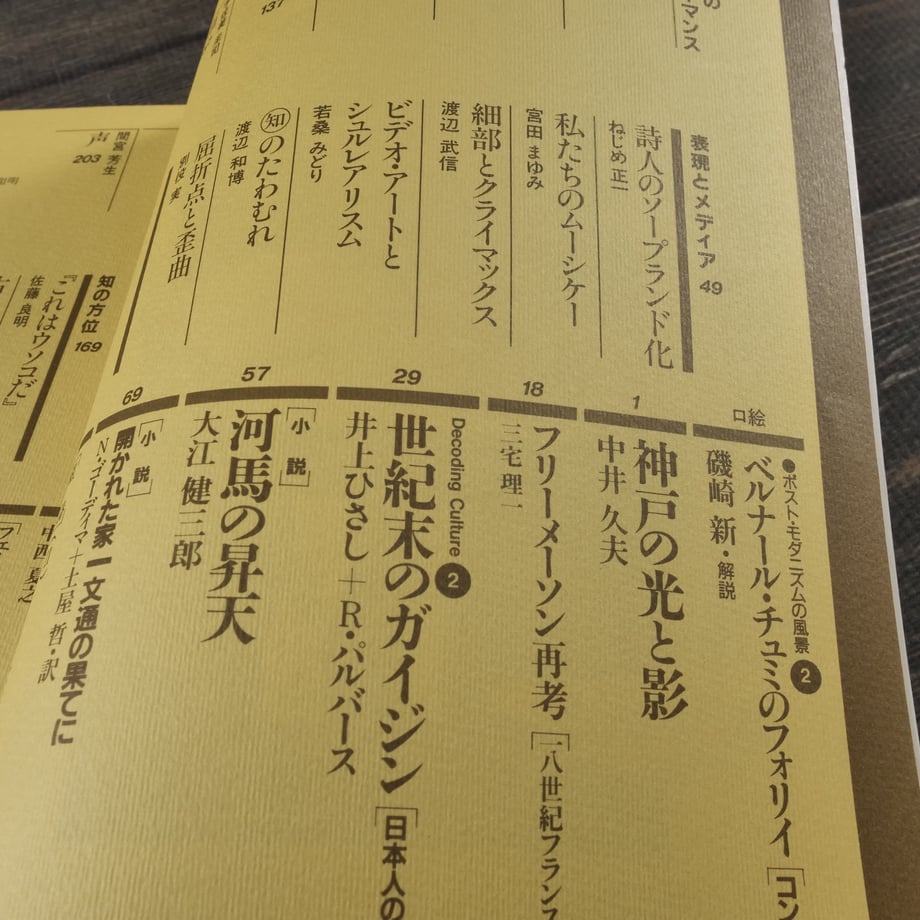 マンス
137
表現とメディア 49
詩人のソープランド化
ねじめ 正一
私たちのムーシケー
宮田 まゆみ
細部とクライマックス
渡辺 武信
ビデオ・アートと
シュルレアリスム
若桑 みどり
㊗のたわむれ
渡辺 和博
屈折点と歪曲
口絵
●ポスト・モダニズムの風景 2
ベルナール・チュミのフォリイ [コン
磯崎 新・解説
1
神戸の光と影
中井 久夫
18
フリーメーソン再考 [一八世紀フランス
三宅 理一
29
Decoding Culture 2
世紀末のガイジン [日本人の
井上ひさし+R・パルバース
57
[小説]
河馬の昇天
大江 健三郎
69
[小説]
開かれた家 一文通の果てに
N・ゴーディマ+土屋 哲・訳
声 203
間宮 芳生
知の方位 169
『これはウソコだ』
佐藤 良明
中西 夏之